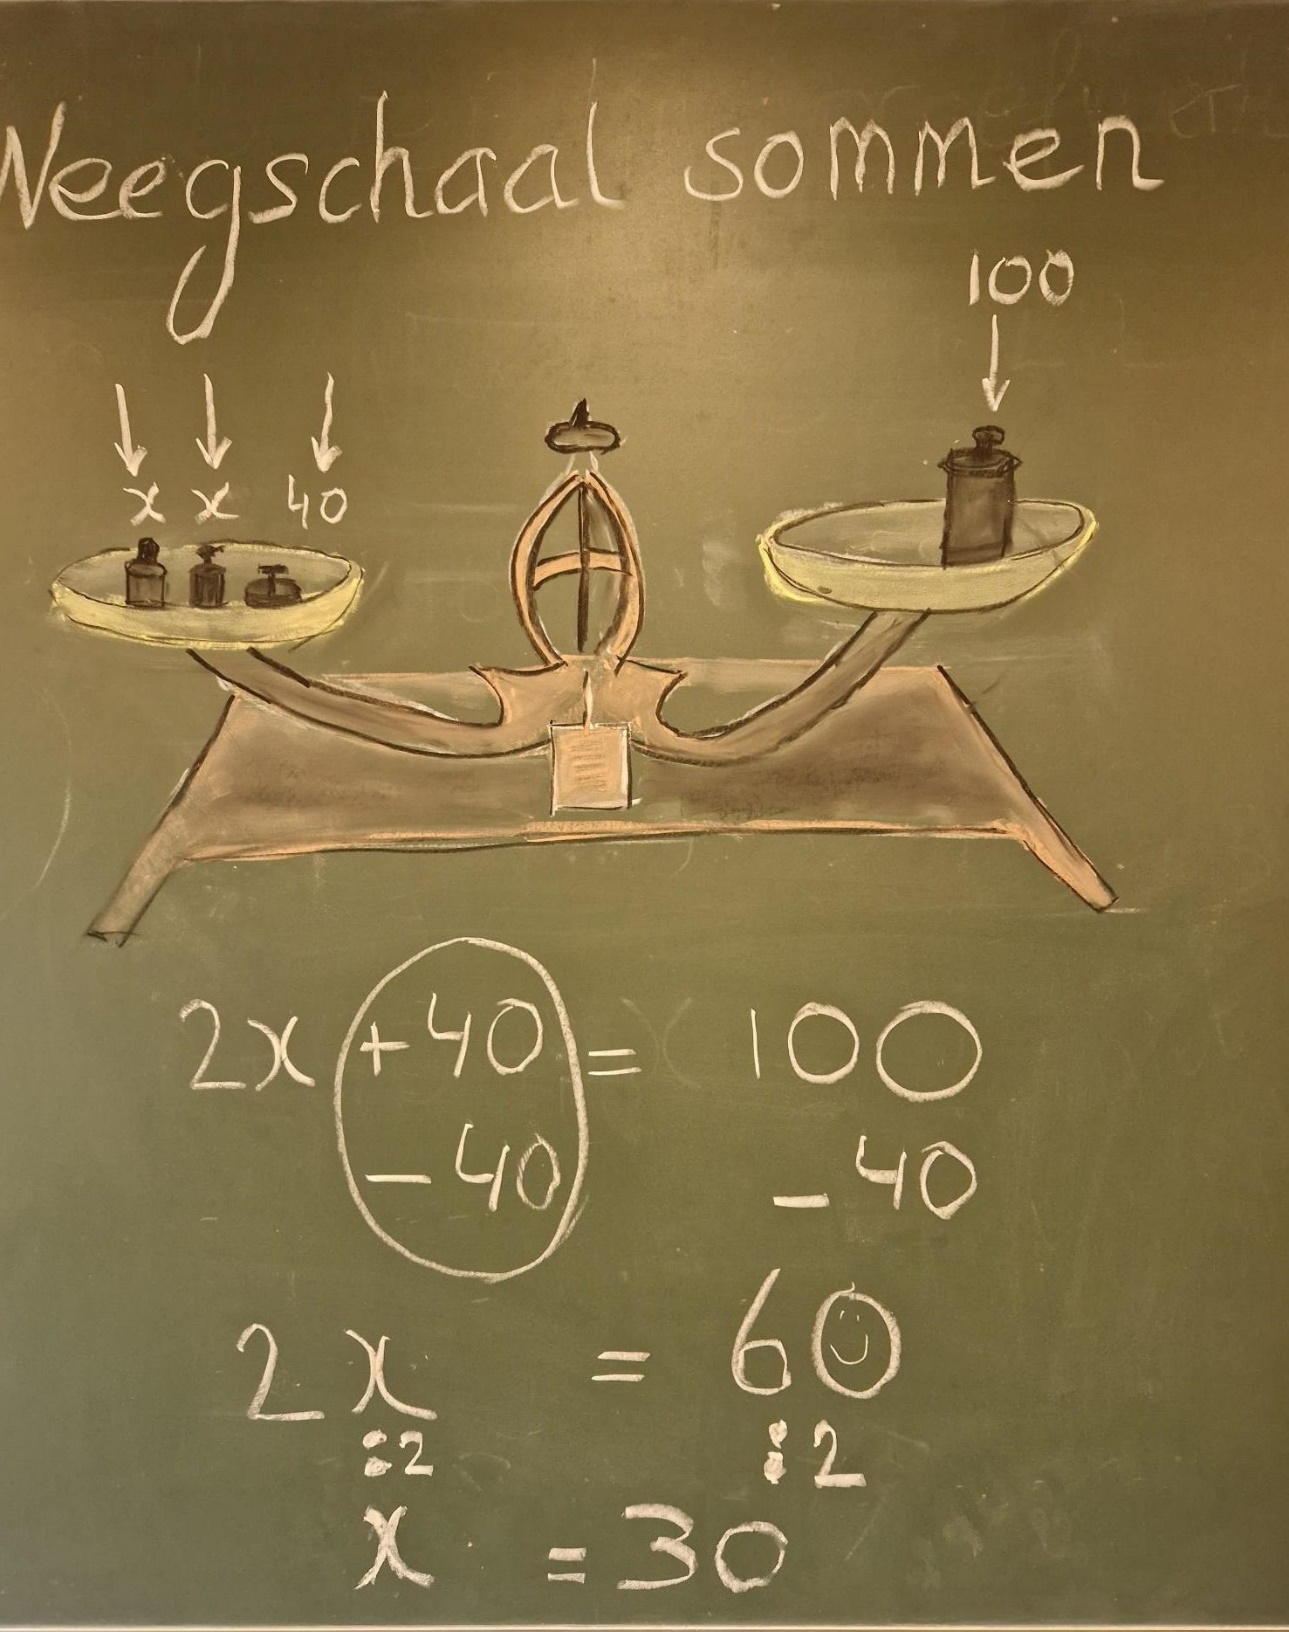 Weegschaal sommen
100
x x 40
2x + 40 = 100
- 40 - 40
2x = 60
:2 :2
x = 30